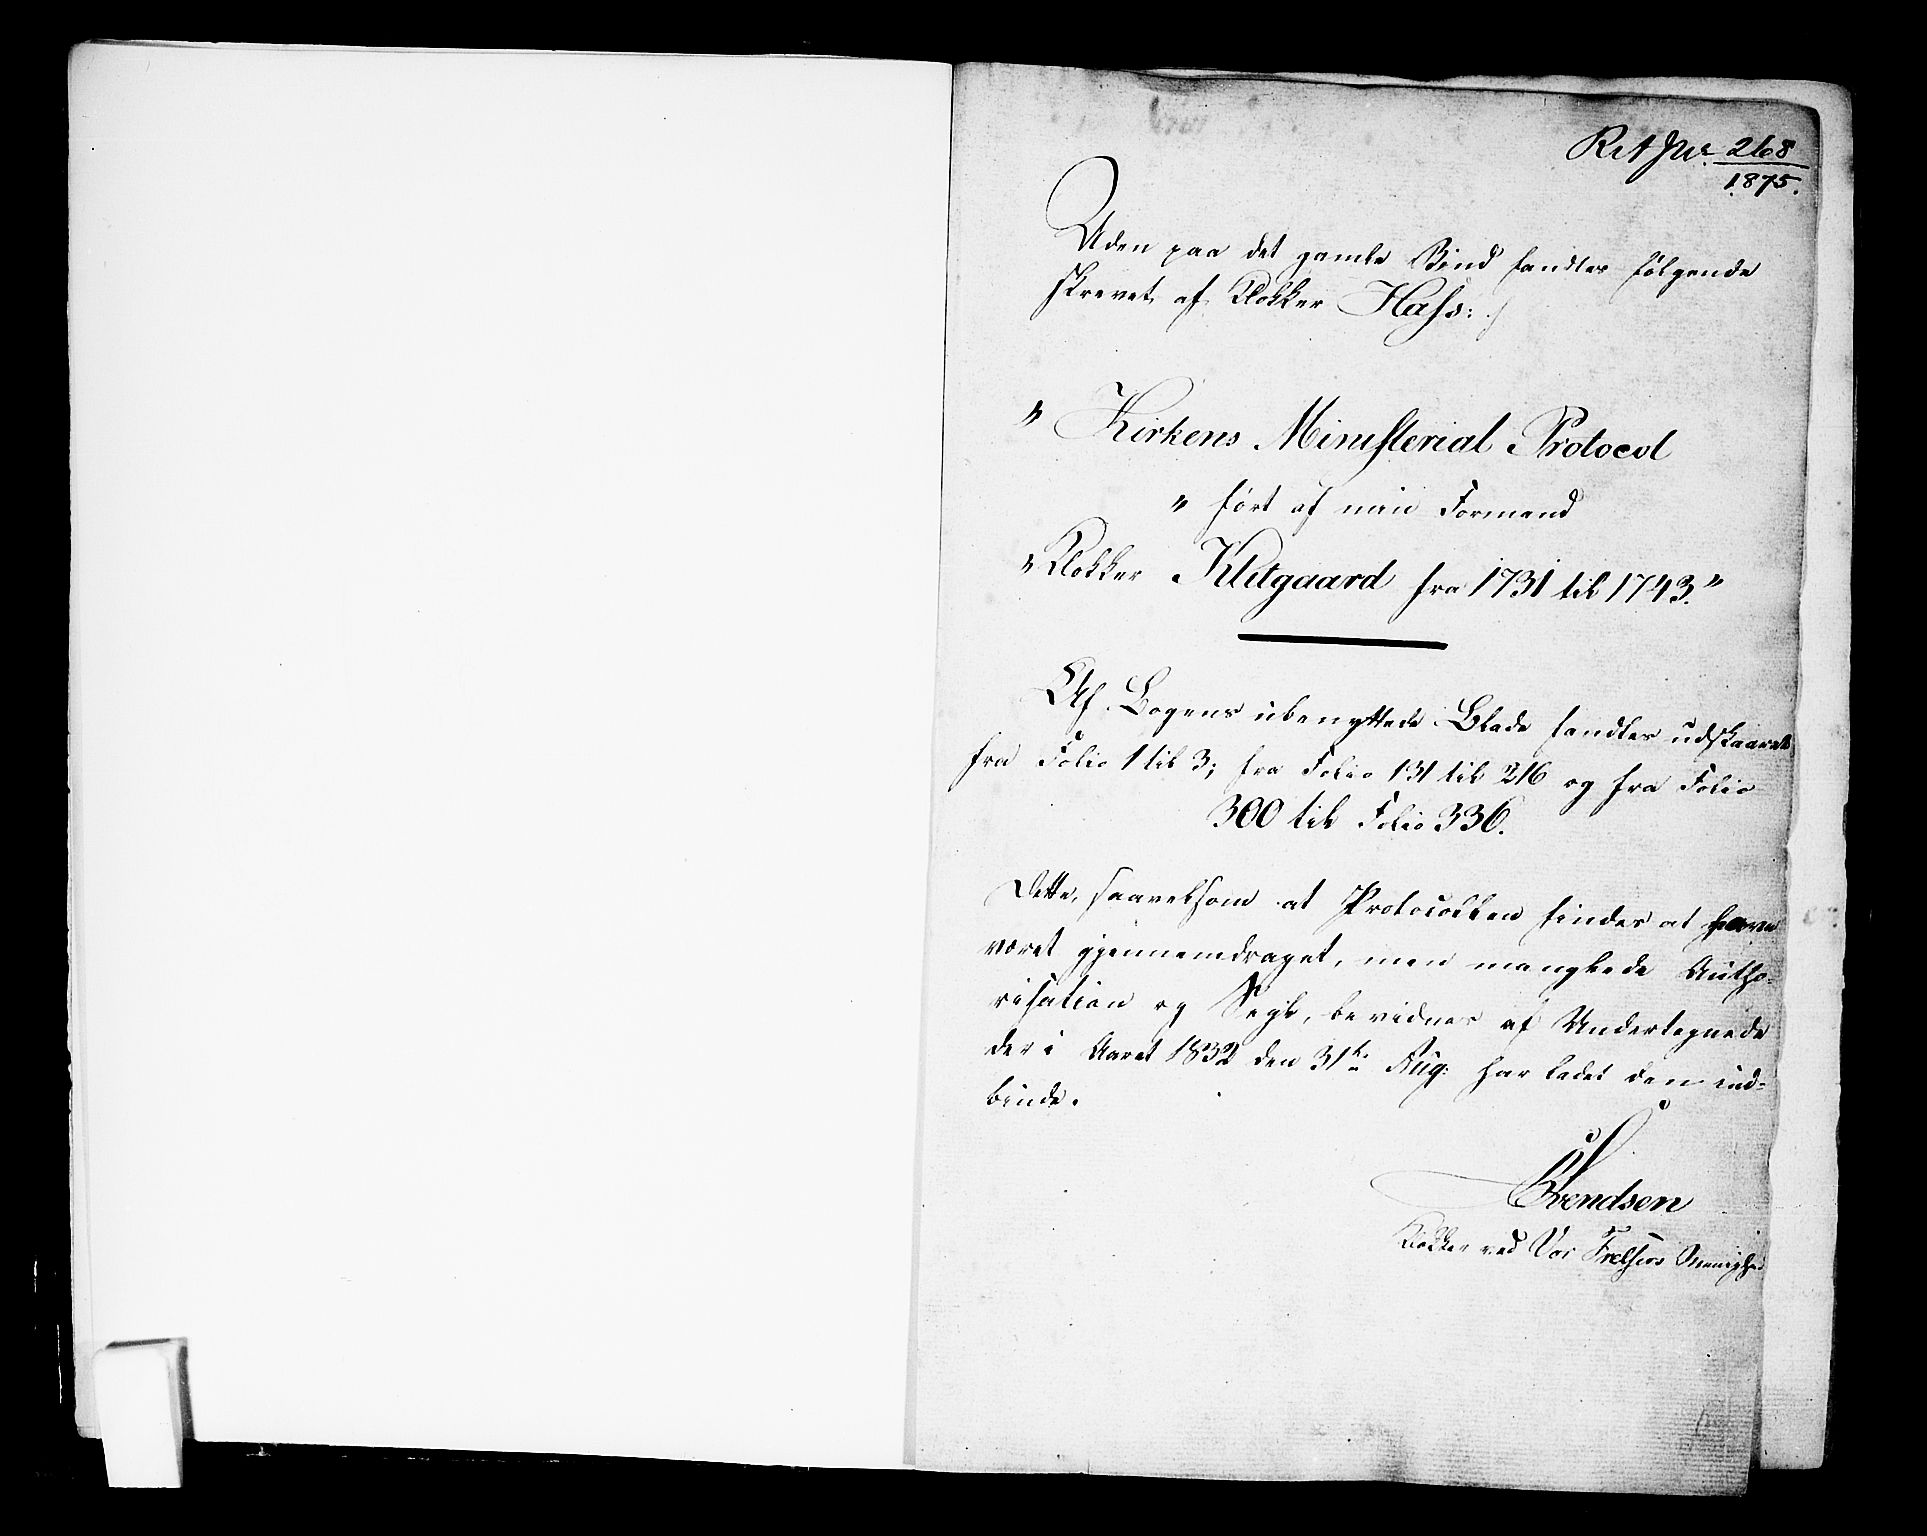 268
1875.
Uden paa det gamle Bind fandtes følgende
skrevet af Klokker Hass:
" Kirkens Ministerial Protocol
" ført af min Formand
" Klokker Klitgaard fra 1731 til 1743."
Af Bogens ubenyttede Blade fandtes udskaaret
fra Folio 1 til 3; fra Folio 131 til 216 og fra Folio
300 til Folio 336.
Dette, saavelsom at Protocollen findes at have
været gjennemdraget, men manglede Autho-
risation og Segl, bevidnes af Undertegnede
der i Aaret 1832 den 31te Aug: har ladet den ind-
binde.
Svendsen
Klokker ved Vor Frelsers Menighed